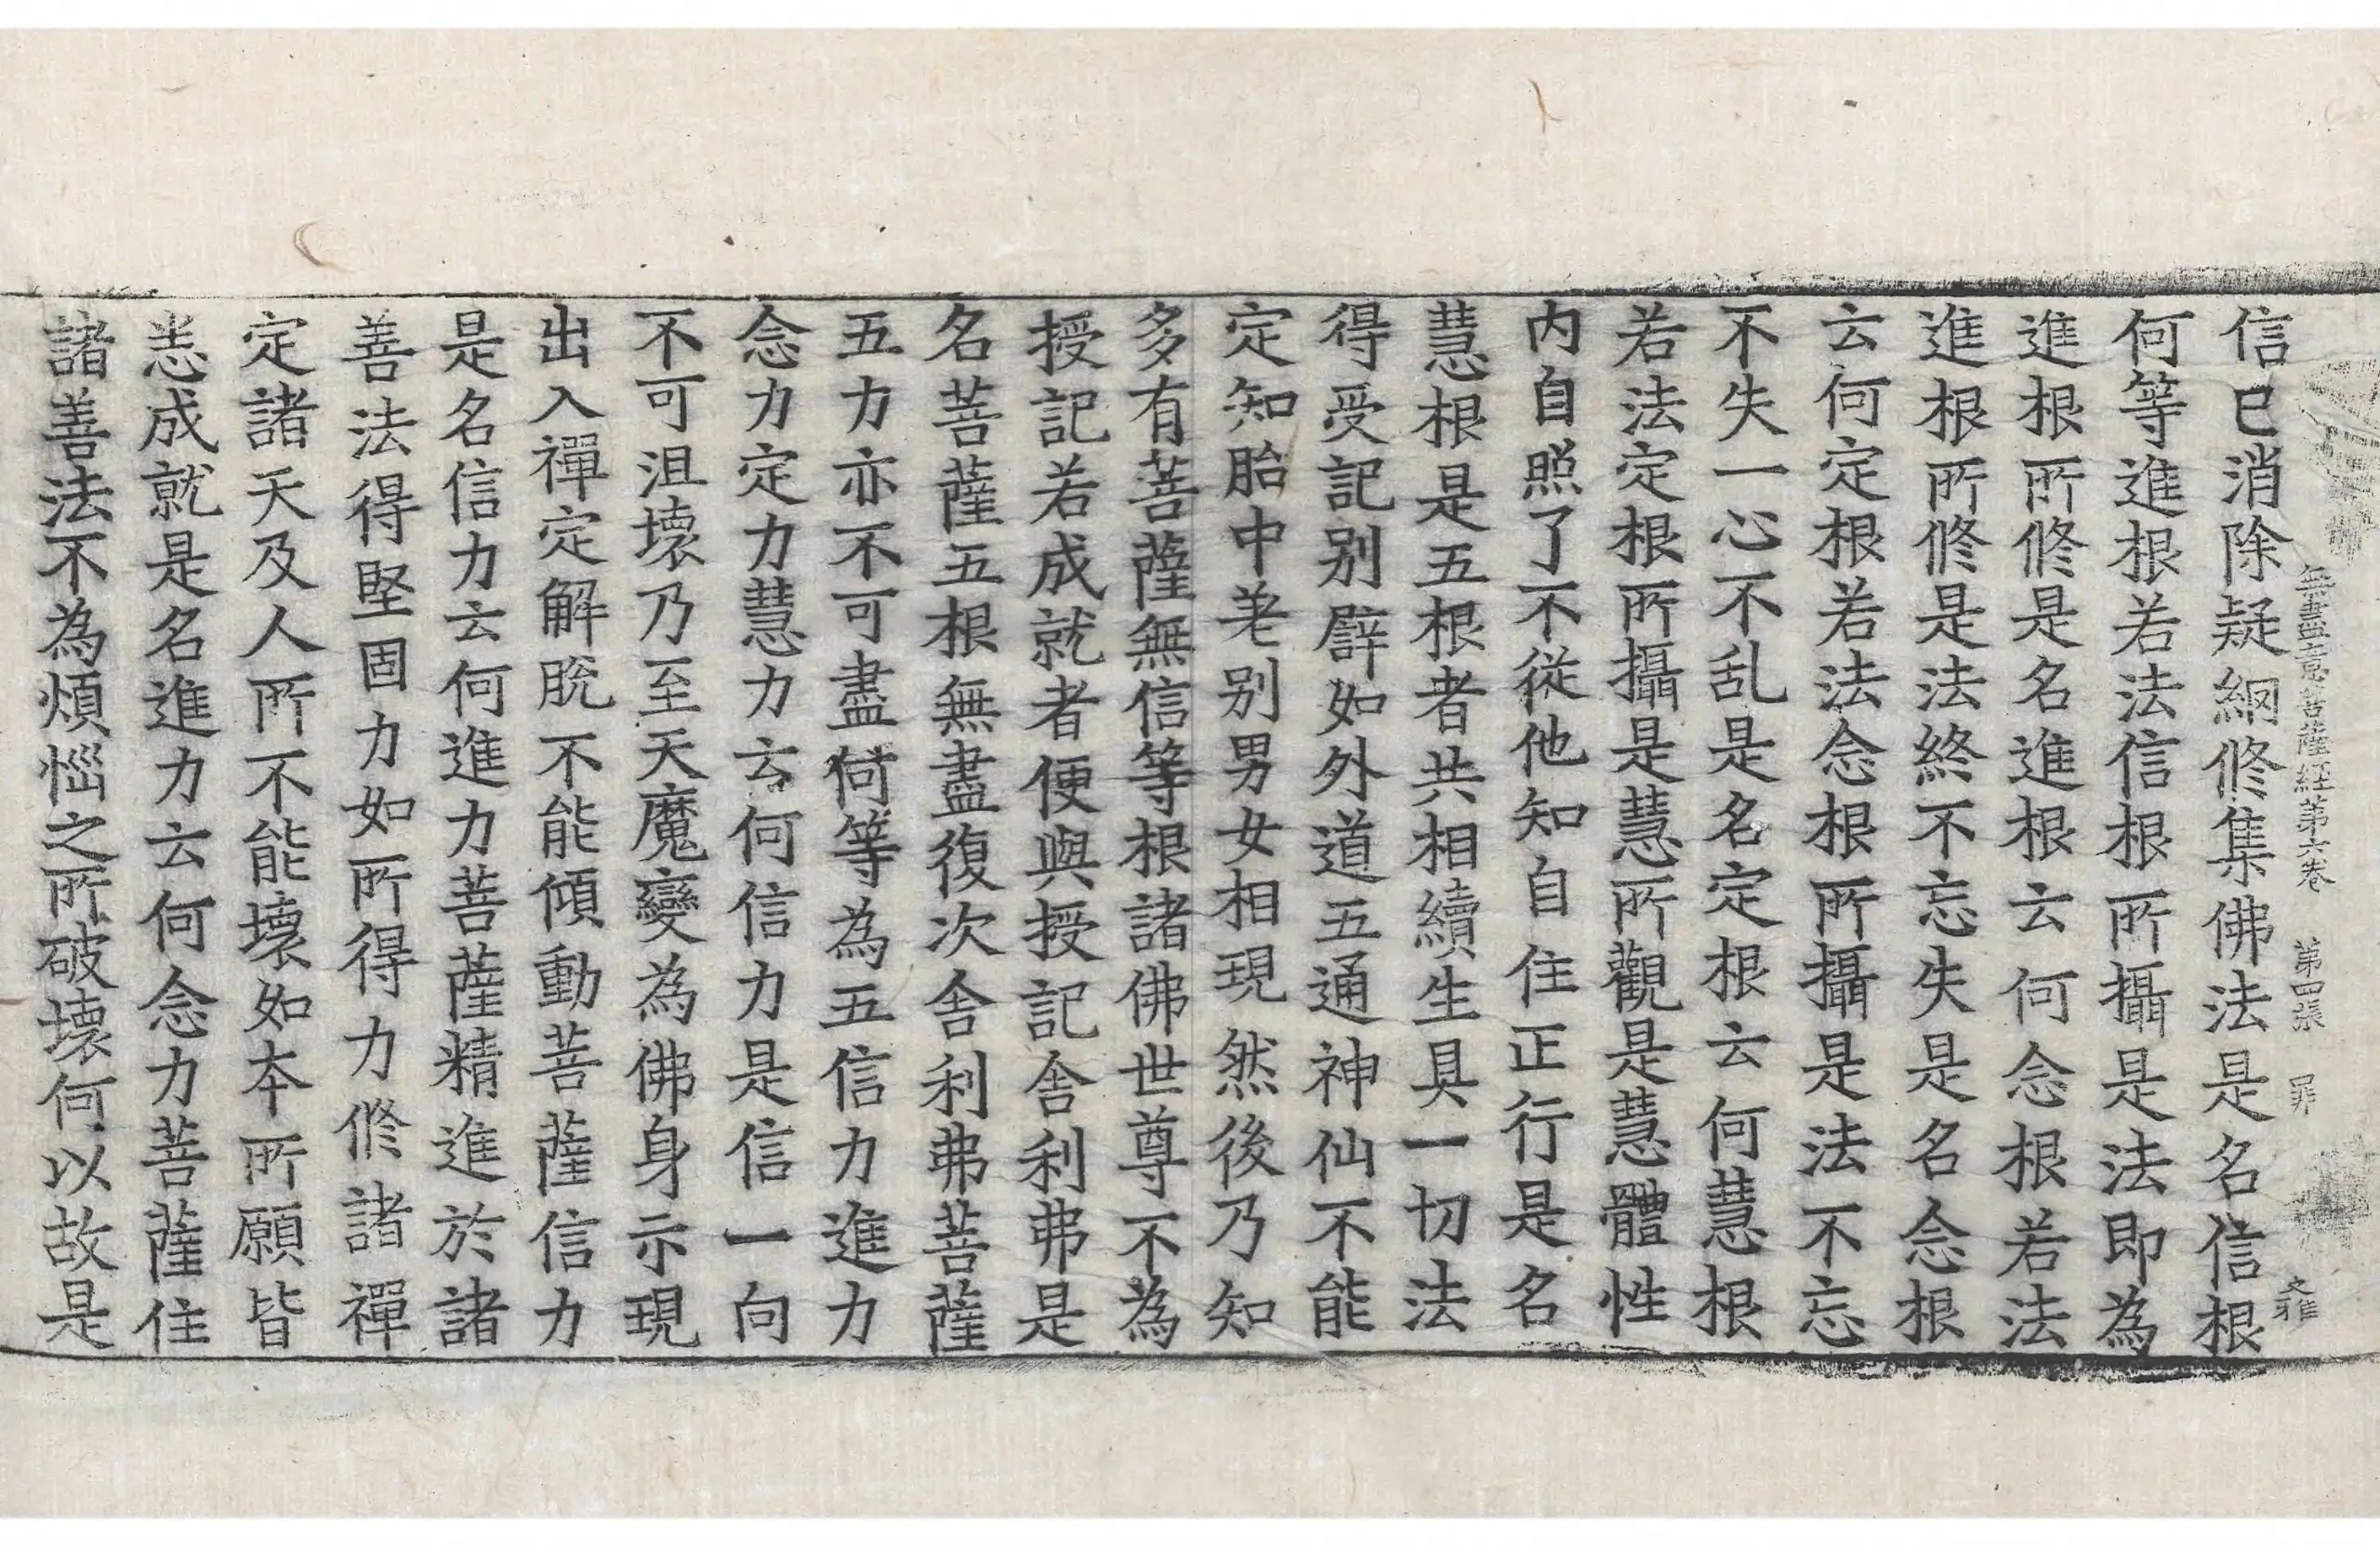 無盡意菩薩經第六卷 第四張 罪 文雅
信已消除疑網修集佛法是名信根
何等進根若法信根所攝是法即為
進根所修是名進根云何念根若法
進根所修是法終不忘失是名念根
云何定根若法念根所攝是法不忘
不失一心不乱是名定根云何慧根
若法定根所攝是慧所觀是慧體性
内自照了不從他知自住正行是名
慧根是五根者共相續生具一切法
得受記别譬如外道五通神仙不能
定知胎中差别男女相現然後乃知
多有菩薩無信等根諸佛世尊不為
授記若成就者便與授記舍利弗是
名菩薩五根無盡復次舍利弗菩薩
五力亦不可盡何等為五信力進力
念力定力慧力云何信力是信一向
不可沮壞乃至天魔變為佛身示現
出入禪定解脫不能傾動菩薩信力
是名信力云何進力菩薩精進於諸
善法得堅固力如所得力修諸禪
定諸天及人所不能壞如本所願皆
悉成就是名進力云何念力菩薩住
諸善法不為煩惱之所破壞何以故是